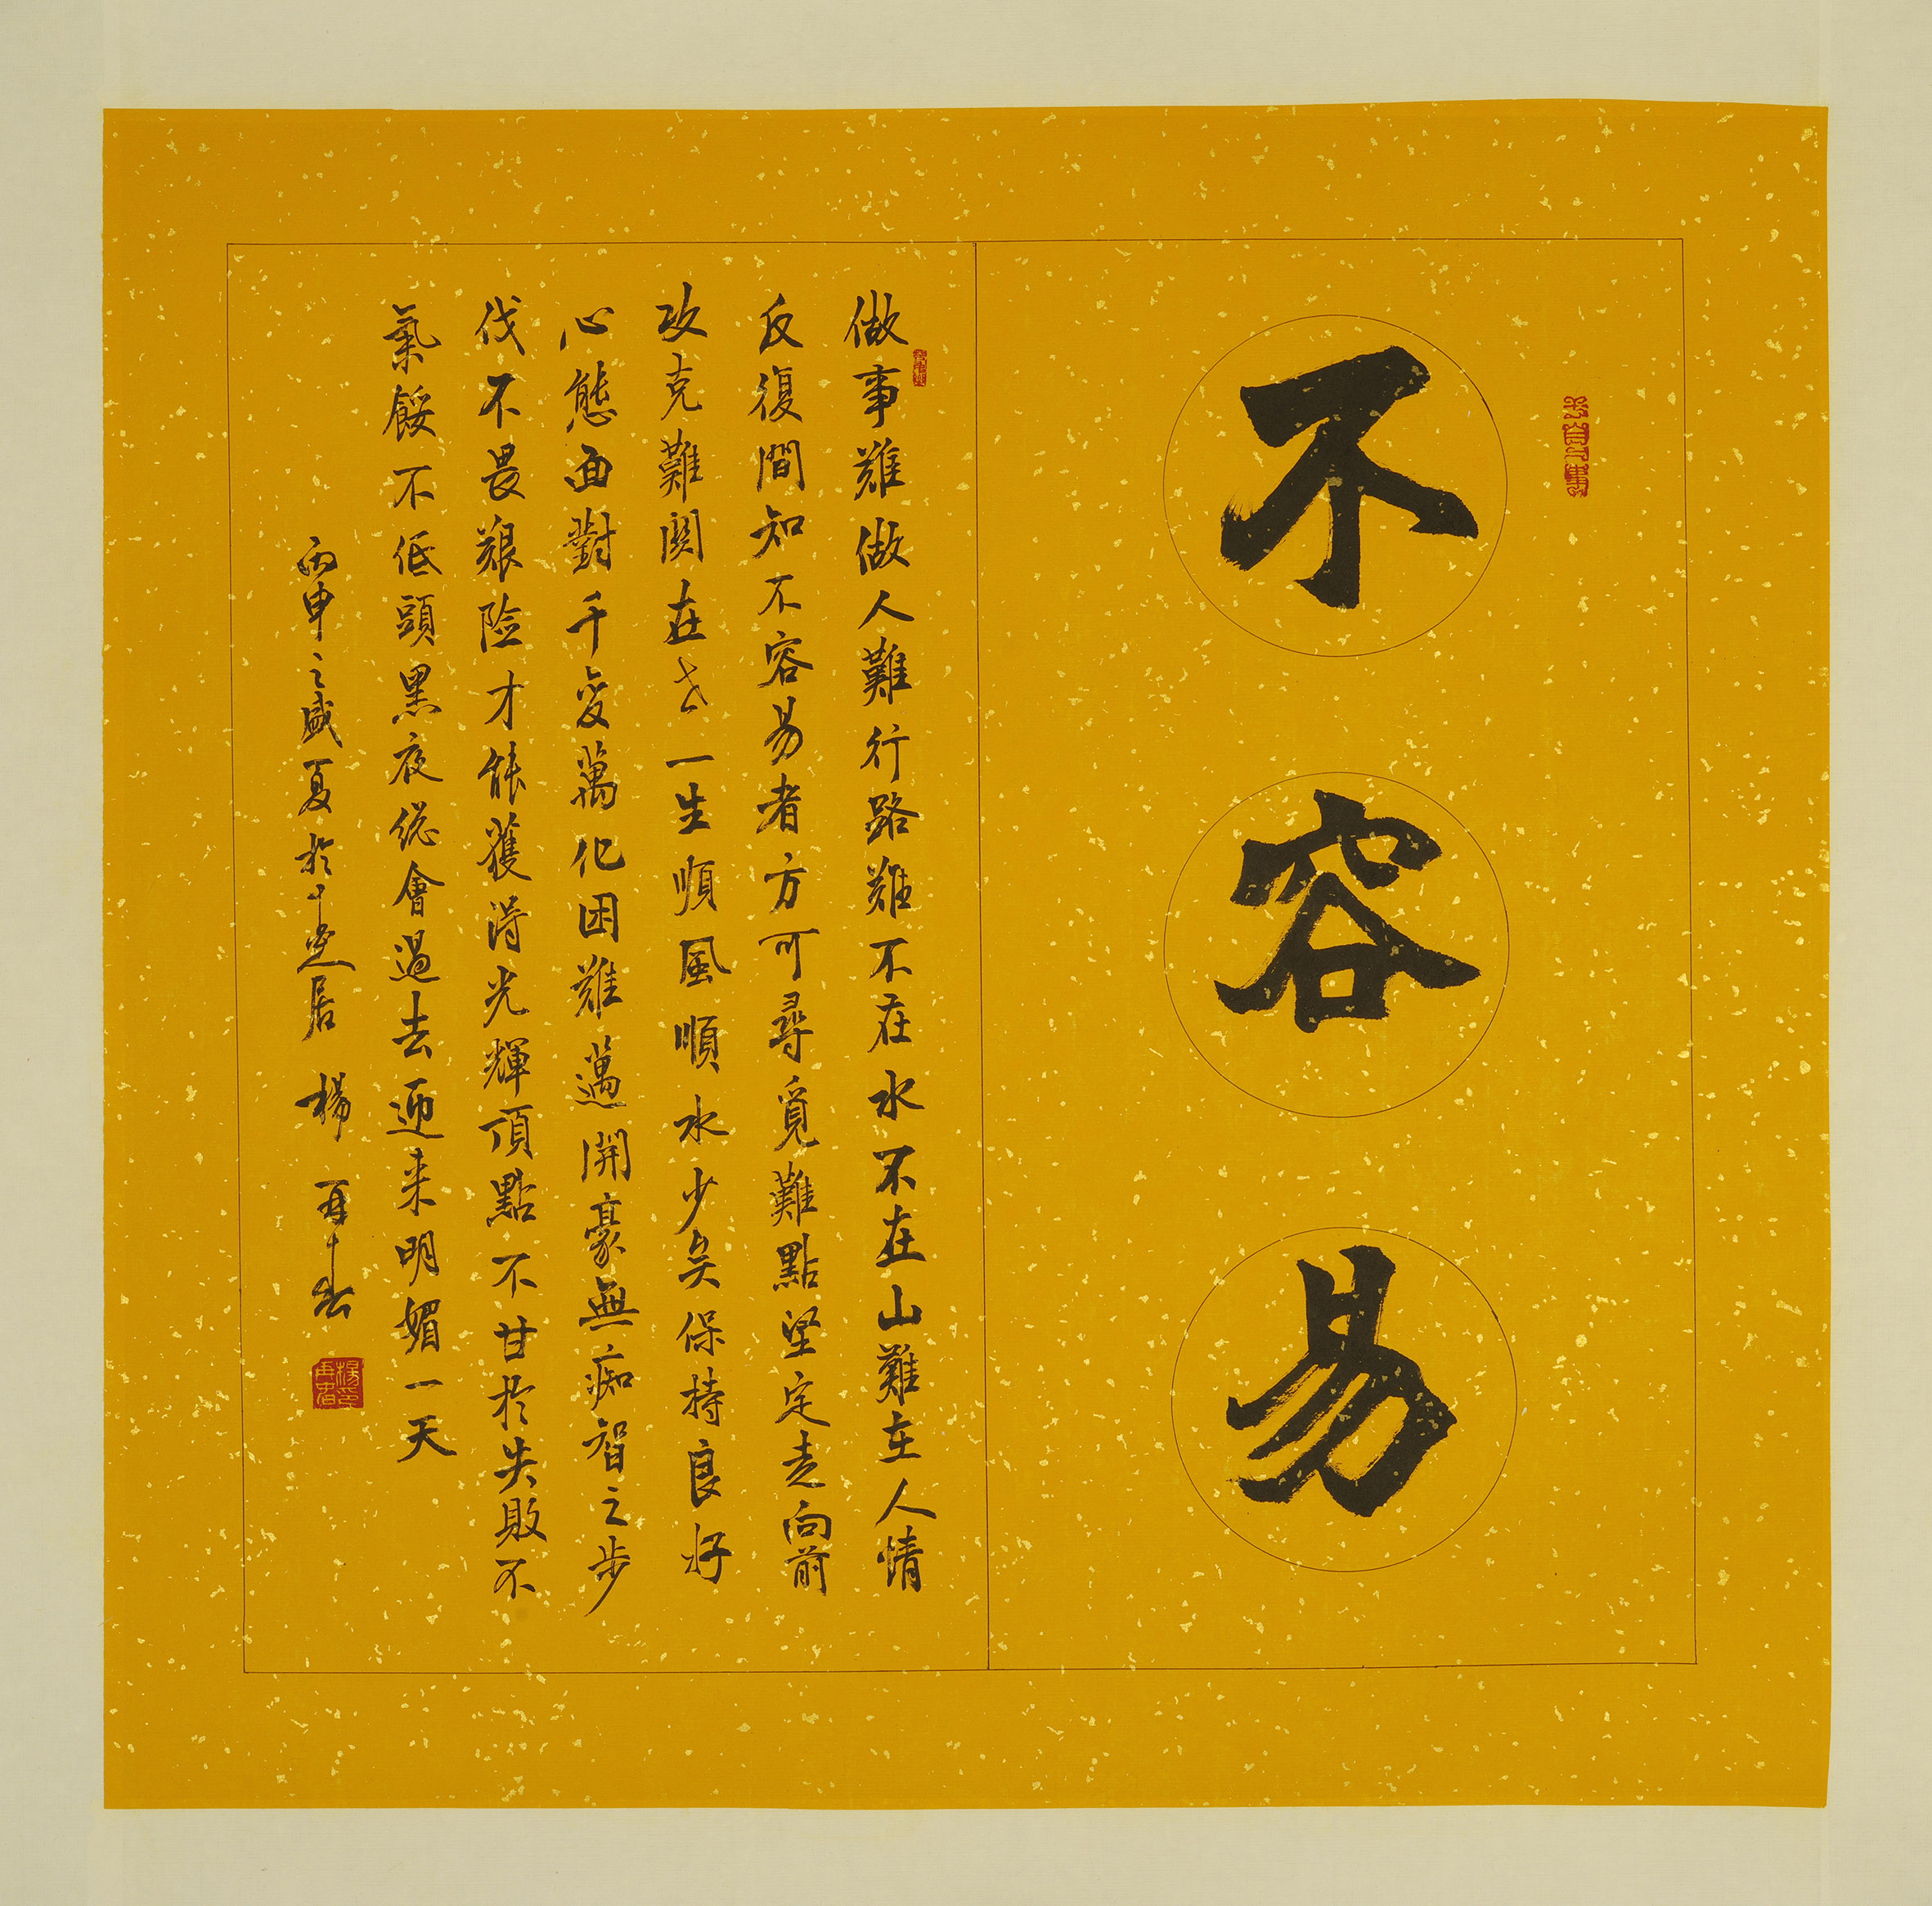 不容易
做事難做人難行路難不在水不在山難在人情
反復間知不容易者方可尋覓難點堅定走向前
攻克難関在世一生順風順水少矣保持良好
心態面對千変萬化困難邁開豪無痴智之步
伐不畏艱险才能獲得光輝頂點不甘於失敗不
氣餒不低頭黑夜總會過去迎来明媚一天
丙申之盛夏於居 楊再春